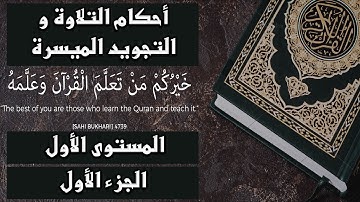 أحكام التلاوة و
التجويد الميسرة
خَيْرُكُمْ مَنْ تَعَلَّمَ الْقُرْآنَ وَعَلَّمَهُ
"The best of you are those who learn the Quran and teach it."
[SAHI BUKHARI] 4739
المستوى الأول
الجزء الأول